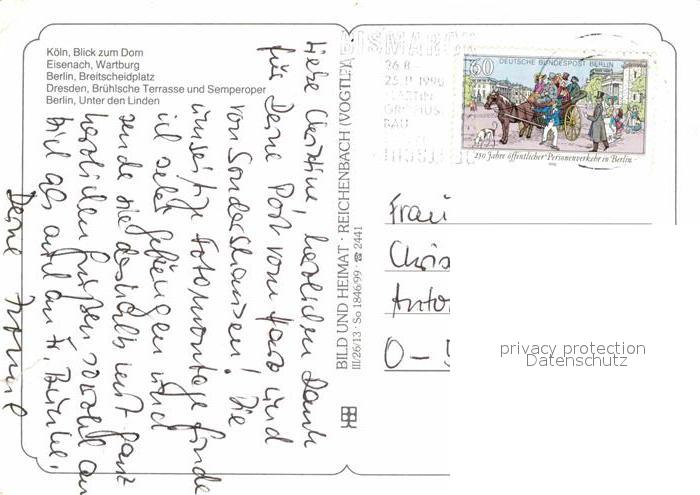 Köln, Blick zum Dom
Eisenach, Wartburg
Berlin, Breitscheidplatz
Dresden, Brühlsche Terrasse und Semperoper
Berlin, Unter den Linden
Liebe Christine, herzlichen Dank
für Deine Post vom Harz und
von Sondershausen! Die
umseitige Fotomontage finde
ich sehr gelungen und
sende sie deshalb mit ganz
herzlichen Grüßen sowohl an
Dich als auch an
Deine
BILD UND HEIMAT · REICHENBACH (VOGTL)
III/26/13 · So 1846/99 · ☎ 2441
BISMARCK
26.8.–
25.11.1990
MARTIN
GROPIUS
BAU
60
DEUTSCHE BUNDESPOST BERLIN
250 Jahre öffentlicher Personenverkehr in Berlin
Frau
Chris
Anto
O-5
privacy protection
Datenschutz